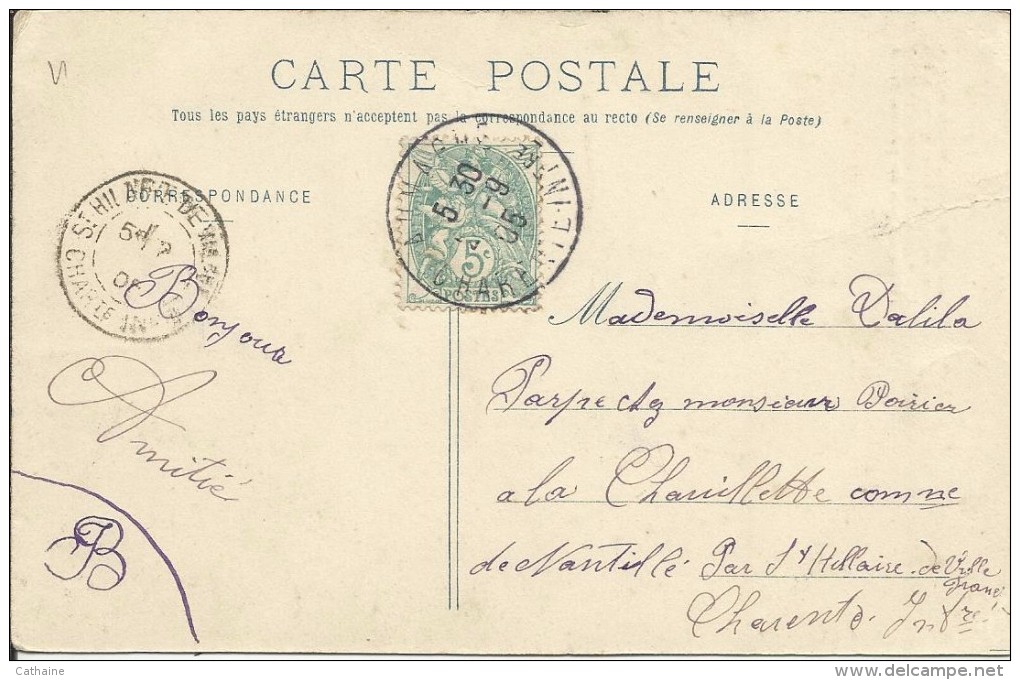 CARTE POSTALE
Tous les pays étrangers n'acceptent pas la correspondance au recto (Se renseigner à la Poste)
CORRESPONDANCE
ADRESSE
5 30
-9
05
CHARENTE INFRE
5c
POSTES
ST HIL
CHARTE INF
Bonjour
Amitié
B
Mademoiselle Dalila
Parpe chez monsieur Poirier
a la Chauillette comne
de Nantillé Par St Hillaire de Ville
franc
Charente Infre
Cathaine
delcampe.net